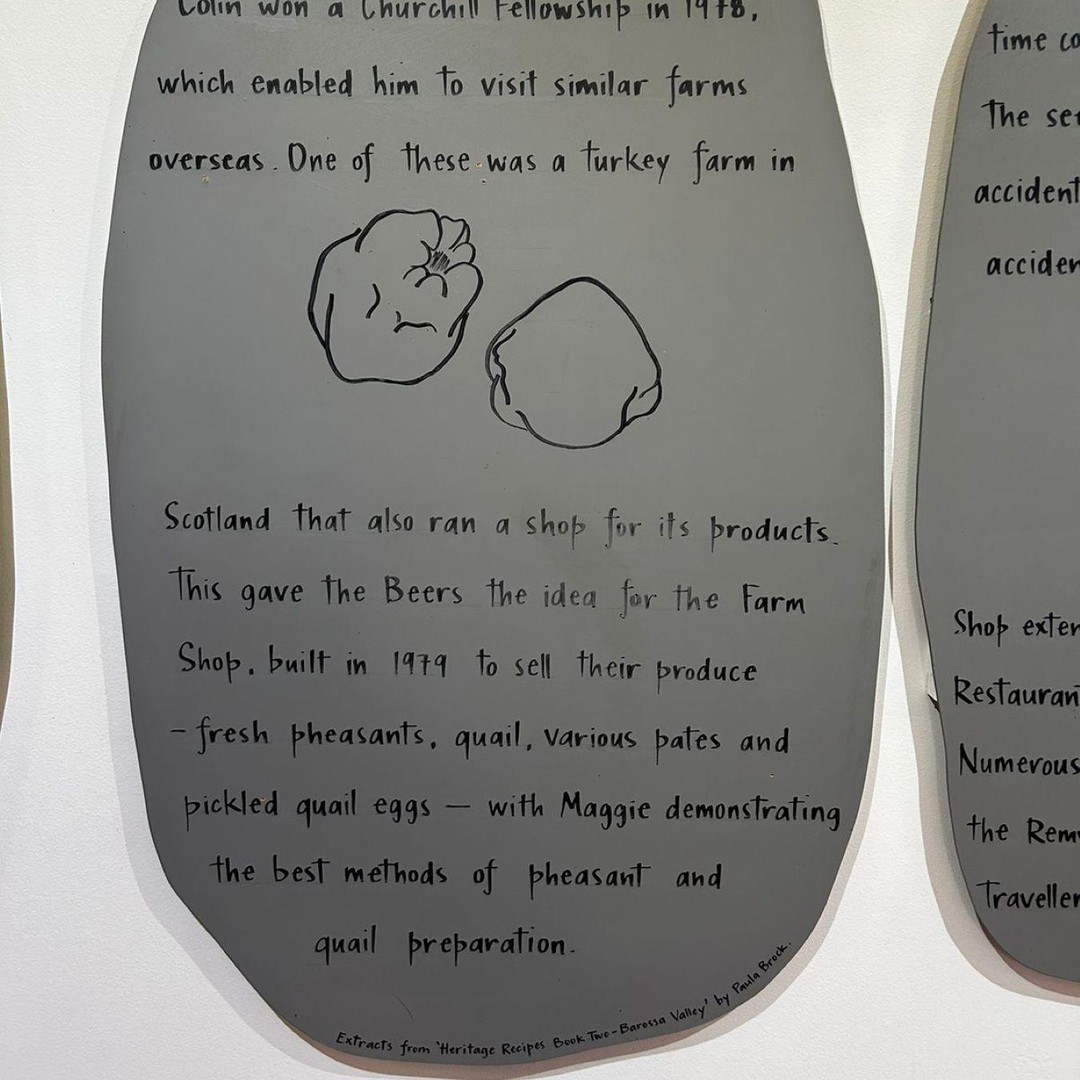 Colin won a Churchill Fellowship in 1978,
which enabled him to visit similar farms
overseas. One of these was a turkey farm in
Scotland that also ran a shop for its products.
This gave the Beers the idea for the Farm
Shop, built in 1979 to sell their produce
- fresh pheasants, quail, various pates and
pickled quail eggs — with Maggie demonstrating
the best methods of pheasant and
quail preparation.
Extracts from 'Heritage Recipes Book Two - Barossa Valley' by Paula Brock.
time
The
accident
Shop
Restaurant
Numerous
the
Traveller